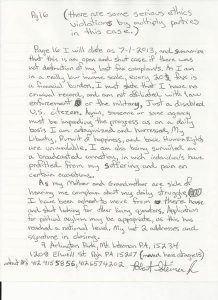 Pg 16 (there are some serious ethics
violations by multiply parties
in this case.)
Page 16 I will date as 7-1-2013, and summarize
that this is an open and shut case if there was
not destruction of my last fax complaints. As I am
in a really low income scale, every 20$ fax is
a financial burden, I must state that I have no
criminal record, and am not affiliated with law
enforcement or the military, Just a disabled
U.S. citizen. Again, someone or some agency
must be impeding the progress as on a daily
basis I am antagonized and harressed. My
Liberty, Pursuit of happiness, and basic Human Rights
are unavailable. I am also being surveilled on
a broadcasted connection, in wich individuals have
profited from my suffering and pain on
certain occasions.
As my Mother and Grandmother are sick of
hearing me complain about my daily struggle
I have been asked to move from there house
and start looking for other living quarters. Asylum
for political asylum may be appropriate, as this has
reached a national level. My last 2 addresses and
signature in closing.
9 Arlington Park, Mt. Lebanon PA, 15234
1209 Elwell St Pgh PA 15207
412 4158856, 4126574202